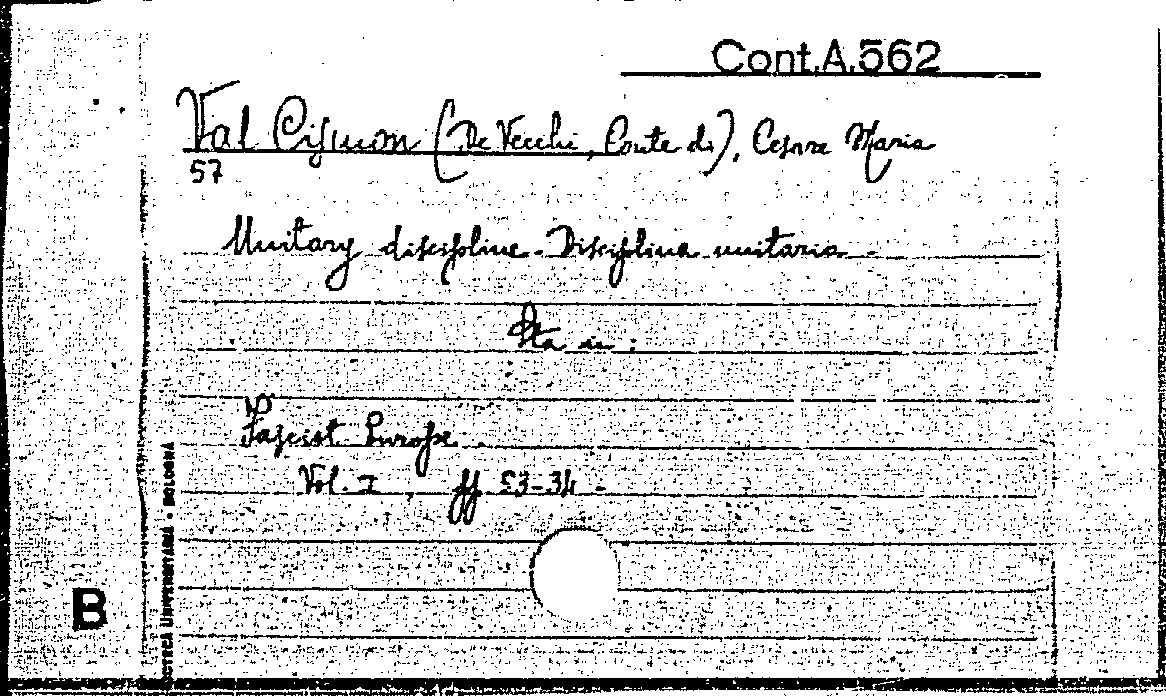 Cont.A.562
Val Cismon (De Vecchi, Conte di), Cesare Maria
57
Unitary discipline - Disciplina unitaria -
Sta in :
Fascist Europe
Vol. I, ff 53-34 -
BIOTECA UNIVERSITARIA - BOLOGNA
B